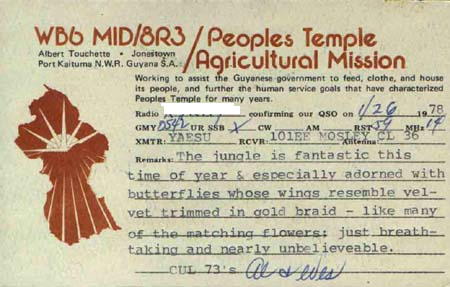 WB6 MID/8R3 / Peoples Temple
Albert Touchette • Jonestown / Agricultural Mission
Port Kaituma N.W.R. Guyana S.A.
Working to assist the Guyanese government to feed, clothe, and house
its people, and further the human service goals that have characterized
Peoples Temple for many years.
Radio confirming our QSO on 1/26 1978
GMT 0542 UR SSB X CW AM RST 59 MHz 14
XMTR: YAESU RCVR: 101EE MOSLEY CL 36 Antenna:
Remarks: The jungle is fantastic this
time of year & especially adorned with
butterflies whose wings resemble vel-
vet trimmed in gold braid - like many
of the matching flowers; just breath-
taking and nearly unbelieveable.
CUL 73's Al &